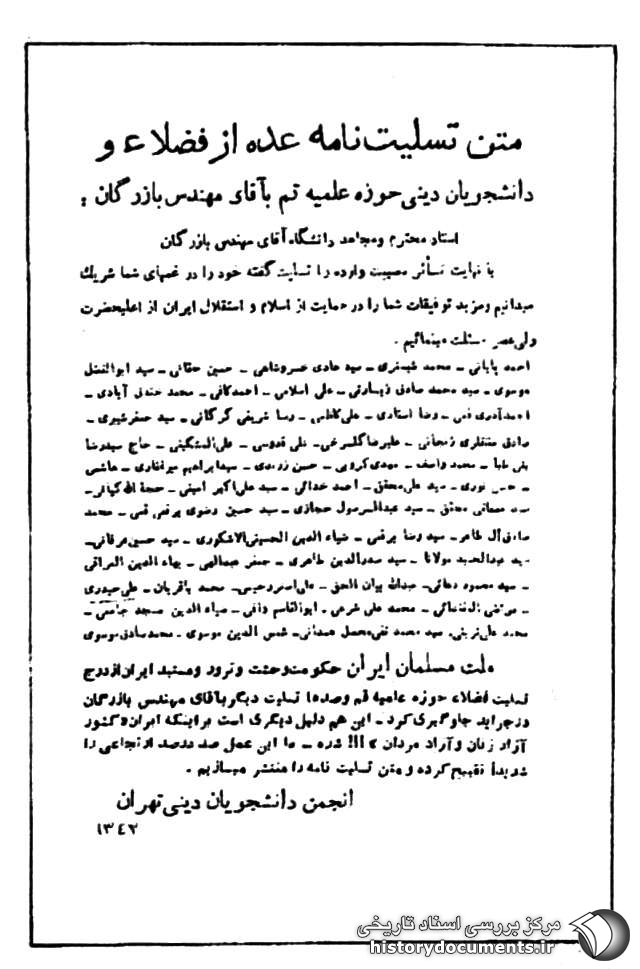 متن تسلیت‌نامه عده از فضلاء و
دانشجویان دینی حوزه علمیه قم بآقای مهندس بازرگان :
استاد محترم ومجاهد دانشگاه آقای مهندس بازرگان
با نهایت تأثر مصیبت وارده را تسلیت گفته خود را در غمهای شما شریك
میدانیم ومزید توفیقات شما را در حمایت از اسلام و استقلال ایران از اعلیحضرت
ولی‌عصر مسئلت مینمائیم .
احمد پایانی ـ محمد شبستری ـ سید هادی خسروشاهی ـ حسین حقانی ـ سید ابوالفضل
موسوی ـ سید محمد صادق زیارتی ـ علی اسلامی ـ احمدکافی ـ محمد خندق آبادی ـ
احمدآذری قمی ـ رضا استادی ـ علی‌کاظمی ـ رضا شریفی گرگانی ـ سید جعفرشبیری ـ
صادق منتظری زنجانی ـ علیرضا گلسرخی ـ علی قدوسی ـ علی‌المشگینی ـ حاج سیدرضا
ـ محمد واصف ـ مهدی‌کروبی ـ حسن ـ سیدابراهیم میرغفاری ـ هاشمی
ـ حسین نوری ـ سید علی‌محقق ـ احمد خدائی ـ سید علی‌اکبر امینی ـ حجة الله کیانی ـ
سید مصطفی محقق ـ سید عبدالرسول حجازی ـ سید حسین رضوی برقعی قمی ـ محمد
صادق‌آل طاهر ـ سید رضا برقعی ـ ضیاء الدین الحسینی‌الاشکوری ـ سید حسین‌عرفانی ـ
سید عبدالحمید مولانا ـ سید صدرالدین طاهری ـ جعفر عبدالهی ـ بهاء الدین العراقی
ـ سید محمود دعائی ـ عبدالله بیان الحق ـ علی‌اصغررحیمی ـ محمد باقریان ـ علی‌حیدری
ـ محمد علی شرعی ـ ابوالقاسم وافی ـ ضیاء الدین مسجد جامعی ـ
محمد سید محمد تقی همدانی ـ شمس الدین موسوی ـ محمدصادق‌موسوی
ملت مسلمان ایران حکومت‌وحشت وترور ومستبد ایران‌ازدرج
تسلیت فضلاء حوزه علمیه قم وصدها تسلیت دیگربآقای مهندس بازرگان
درجراید جلوگیری‌کرد ـ این هم دلیل دیگری است براینکه ایران «کشور
آزاد زنان وآزاد مردان » !!! شده ـ ما این عمل صد درصد ارتجاعی را
شدیداً تقبیح کرده و متن تسلیت نامه را منتشر میسازیم .
انجمن دانشجویان دینی تهران
۱۳٤۲
مرکز بررسی اسناد تاریخی
historydocuments.ir